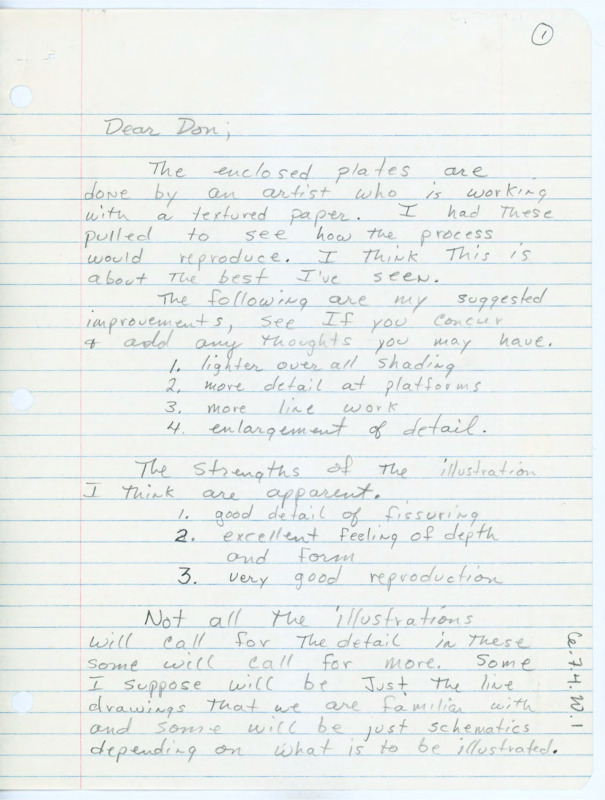 1
Dear Don;
The enclosed plates are
done by an artist who is working
with a textured paper. I had These
pulled to see how the process
would reproduce. I think This is
about The best I've seen.
The following are my suggested
improvements, see If you concur
& add any thoughts you may have.
1. lighter over all shading
2. more detail at platforms
3. more line work
4. enlargement of detail.
The strengths of the illustration
I think are apparent.
1. good detail of fissuring
2. excellent feeling of depth
and form
3. very good reproduction
Not all the illustrations
will call for The detail in These
some will call for more. Some
I suppose will be Just the line
drawings that we are familiar with
and some will be just schematics
depending on what is to be illustrated.